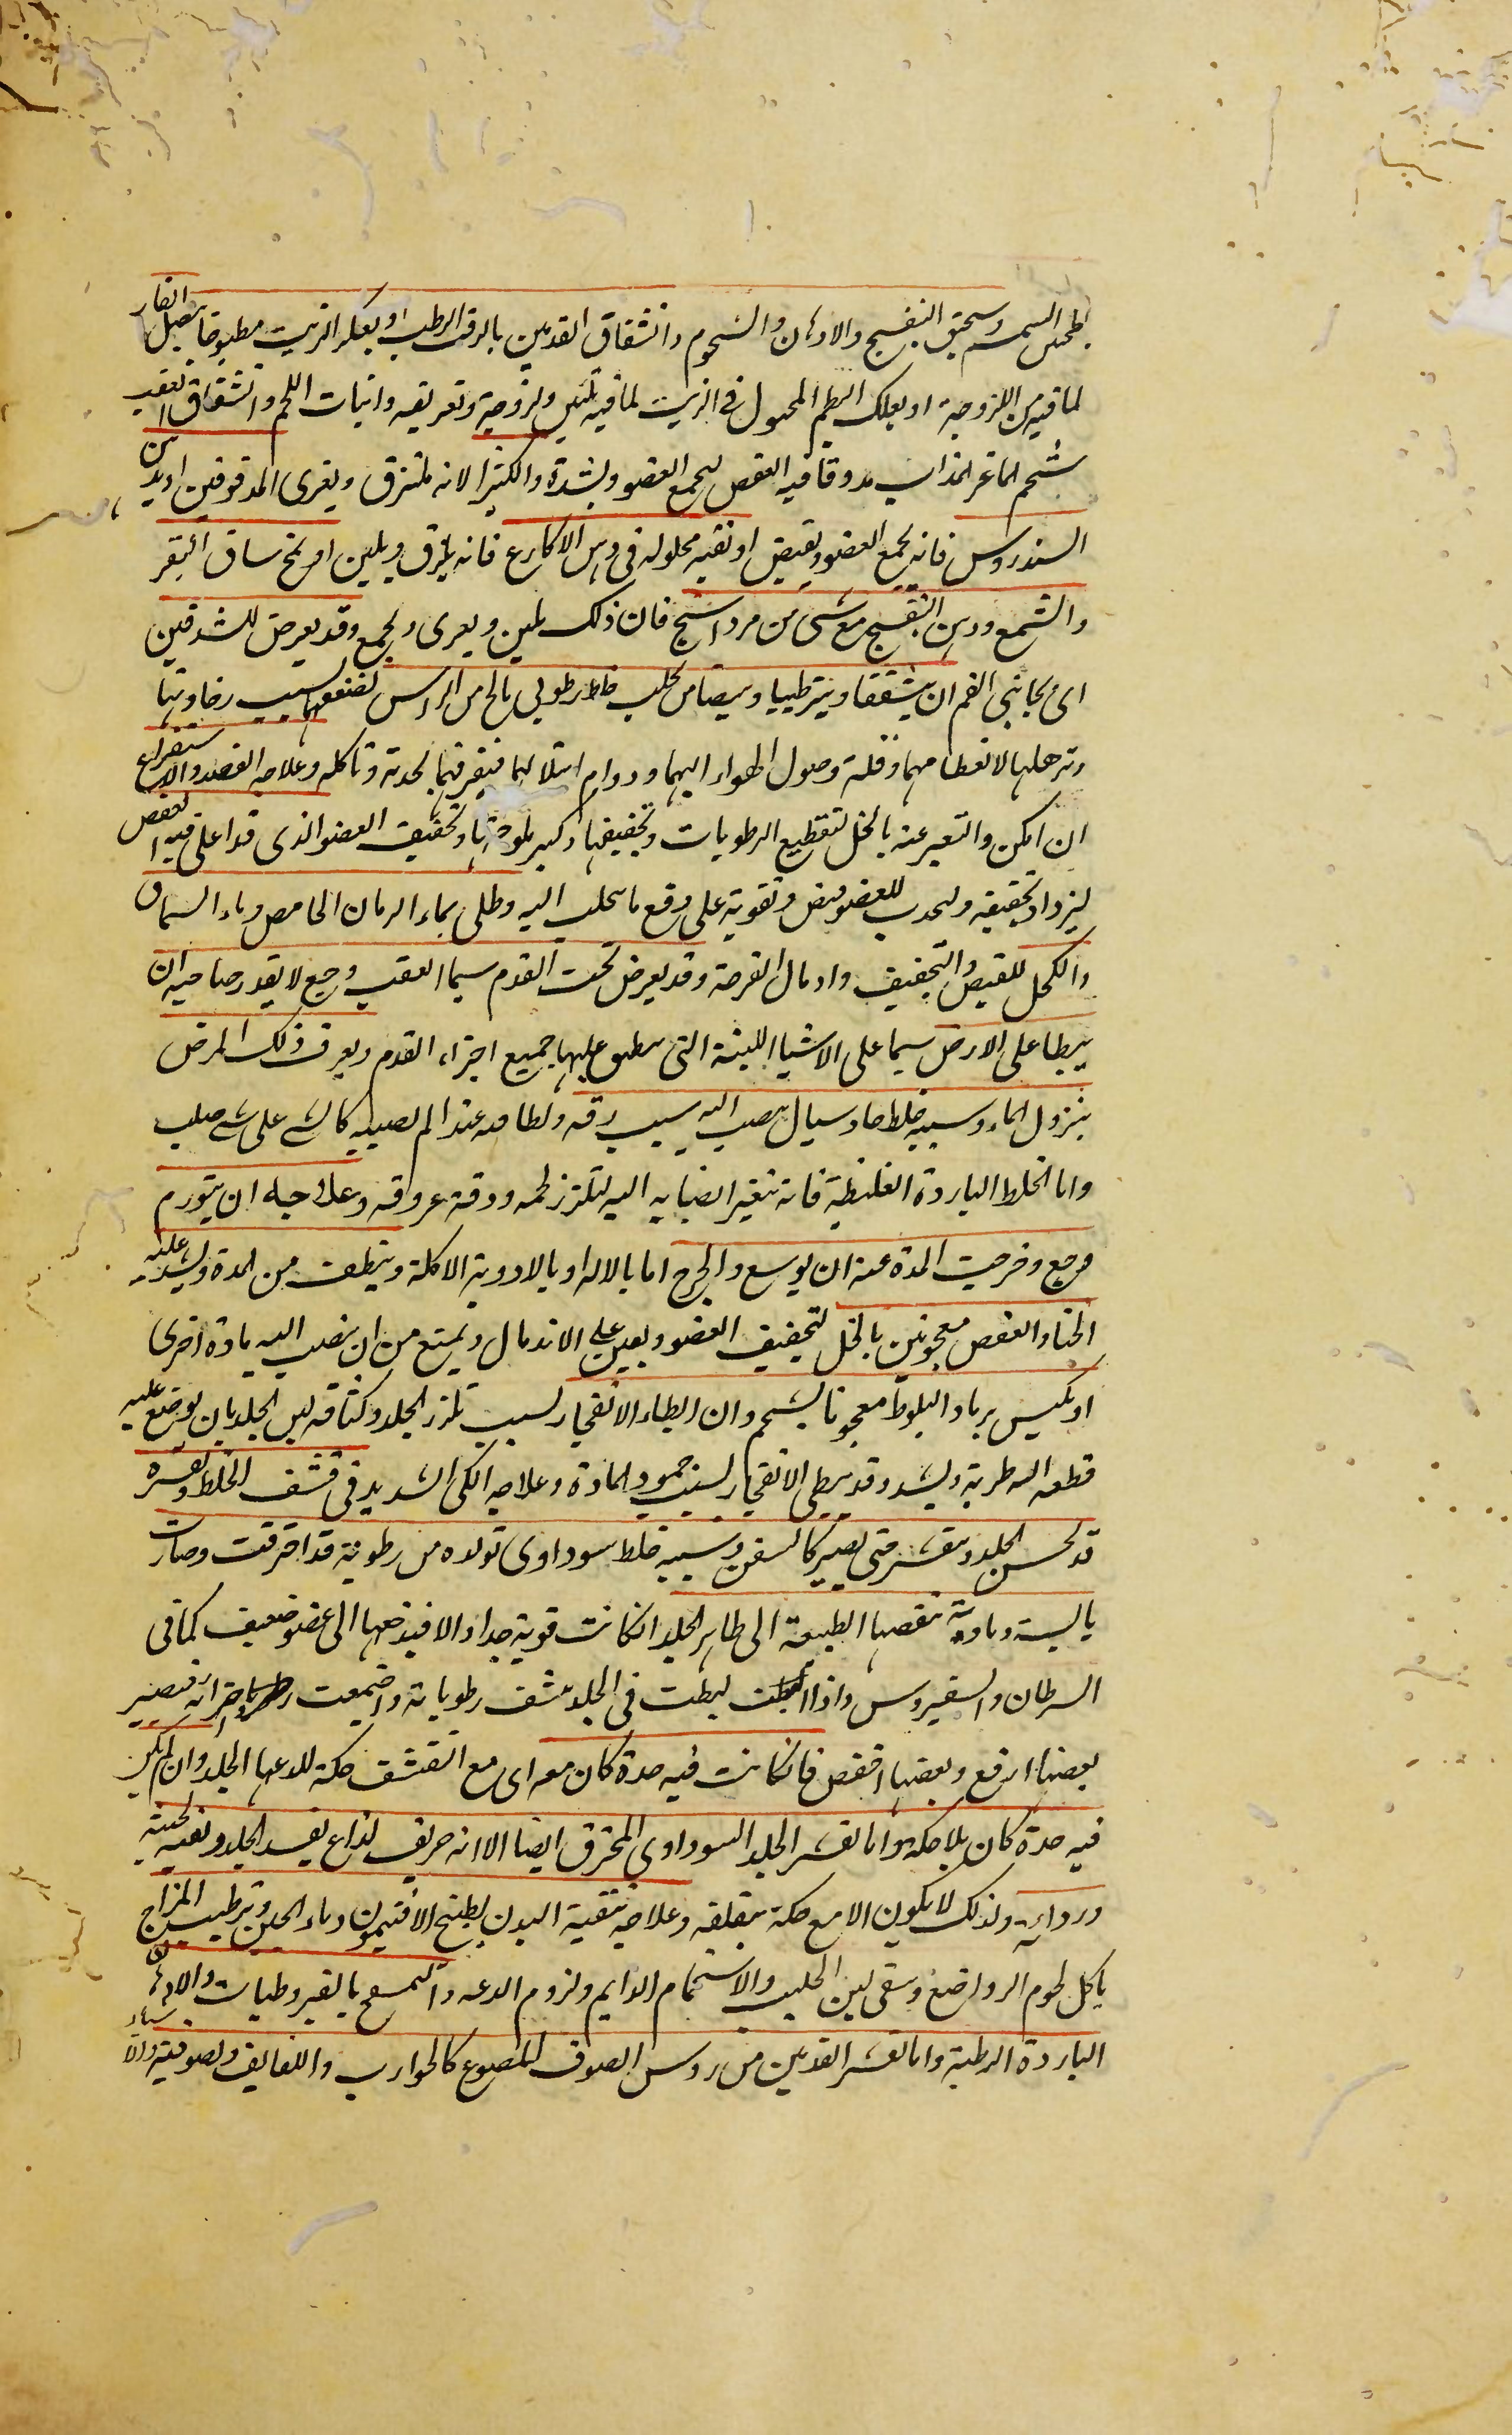 السمسم وسحق البنفسج والادهان والشحوم وانشقاق القدمين بالزفت الرطب او بعكر الزيت مطبوخا ببصل الفار
لما فيه من اللزوجة او بعلك البطم المحلول فى الزيت لما فيه تليين ولزوجة وتغرية وانبات اللحم وانشقاق العقب
شحم الماعز المذاب مدوقا فيه العفص ليجمع العضو ويشده والكثيرا لانه يلتزق ويغرى المدقوقين او يدهن
السندروس فانه يجمع العضو ويقبض او نقيه محلوله فى دهن الاكارع فانه يلزق ويلين او مخ ساق البقر
والشمع ودهن البنفسج مع شى من مرداسنج فان ذلك يلين ويغرى ويجمع وقد يعرض للشدقين
اى بجانبى الفم ان يتشققا ويترطبا ويبيضا من تحلب خلط رطوبى مالح من الراس لضعفهما بسبب رخاوتهما
وترهلهما لانغطامهما وقلة وصول الهواء اليهما ودوام ابتلالهما فيقرحهما بحدته وتاكله وعلاجه الفصد والاستفراغ
ان امكن والتغرغر عنه بالخل لتقطيع الرطوبات وتجفيفها وكسر ملوحتها وتجفيف العضو الذى قد اغلى فيه العفص
ليزداد تجفيفه وليحدث للعضو قبض وتقوية على دفع ما يتحلب اليه وطلى بماء الرمان الحامض وماء السماق
والكحل للقبض والتجفيف وادمال القرحة وقد يعرض تحت القدم سيما العقب وجع لا يقدر صاحبه ان
يبطا على الارض سيما على الاشيا اللينة التى ينطبق عليها جميع اجزاء القدم ويعرف ذلك المرض
بنزول الماء وسببه خلط حاد سيال ينصب اليه بسبب دقه ولطافته عند الم يصيبه كالمشى على شى صلب
واما الخلط الباردة الغليظة فانه يتعذر انصبابه اليه لتلزز لحمه ودقة عروقه وعلاجه ان يتورم
وجع وخرجت المدة عنه ان يوسع والجرح اما بالالة او بالادوية الاكلة وينظف من المدة ويشد عليه
الحنا والعفص معجونين بالخل لتجفيف العضو ويعين على الاندمال ويمنع من ان ينصب اليه مادة اخرى
او يكبس برماد البلوط معجونا بالشحم وان ابطاء الانفجار بسبب تلزز الجلد وكثافته لين الجلد بان يوضع عليه
قطعه اليه طرية ويشد وقد يبطى الانفجار بسبب جمود المادة وعلاجه الكى الشديد فى تقشف الخلط وتقشره
قد يخشن الجلد ويتقشر حتى يصير كالسفن وسببه خلط سوداوى تولده من رطوبة قد احترقت وصارت
يابسة وماوية تنفضها الطبيعة الى ظاهر الجلد ان كانت قوية جدا والا فيدفعها الى عضو ضعيف كما فى
السرطان والسقيروس واذا بطت فى الجلد نشف رطوباته واجتمعت اجزائه فتصير
بعضها ارفع وبعضها اخفض فان كانت فيه حدة كان معه اى مع التقشف حكة للذعها الجلد وان لم يكن
فيه حدة كان بلا حكة واما تقشر الجلد السوداوى المحترق ايضا الا انه حريف لذاع يفسد الجلد ونفيه لخبثه
وردائته ولذلك لا يكون الا مع حكة مقلقه وعلاجه تنقية البدن بطبيخ الافتيمون وماء الجبن وترطيب المزاج
باكل لحوم الرواضع وسقى لبن الحليب والاستحمام الدايم ولزوم الدعة والتمسح بالقيروطيات والادهان
الباردة الرطبة واما تقشر القدمين من روس الصوف المصبوغ كالجوارب واللفايف